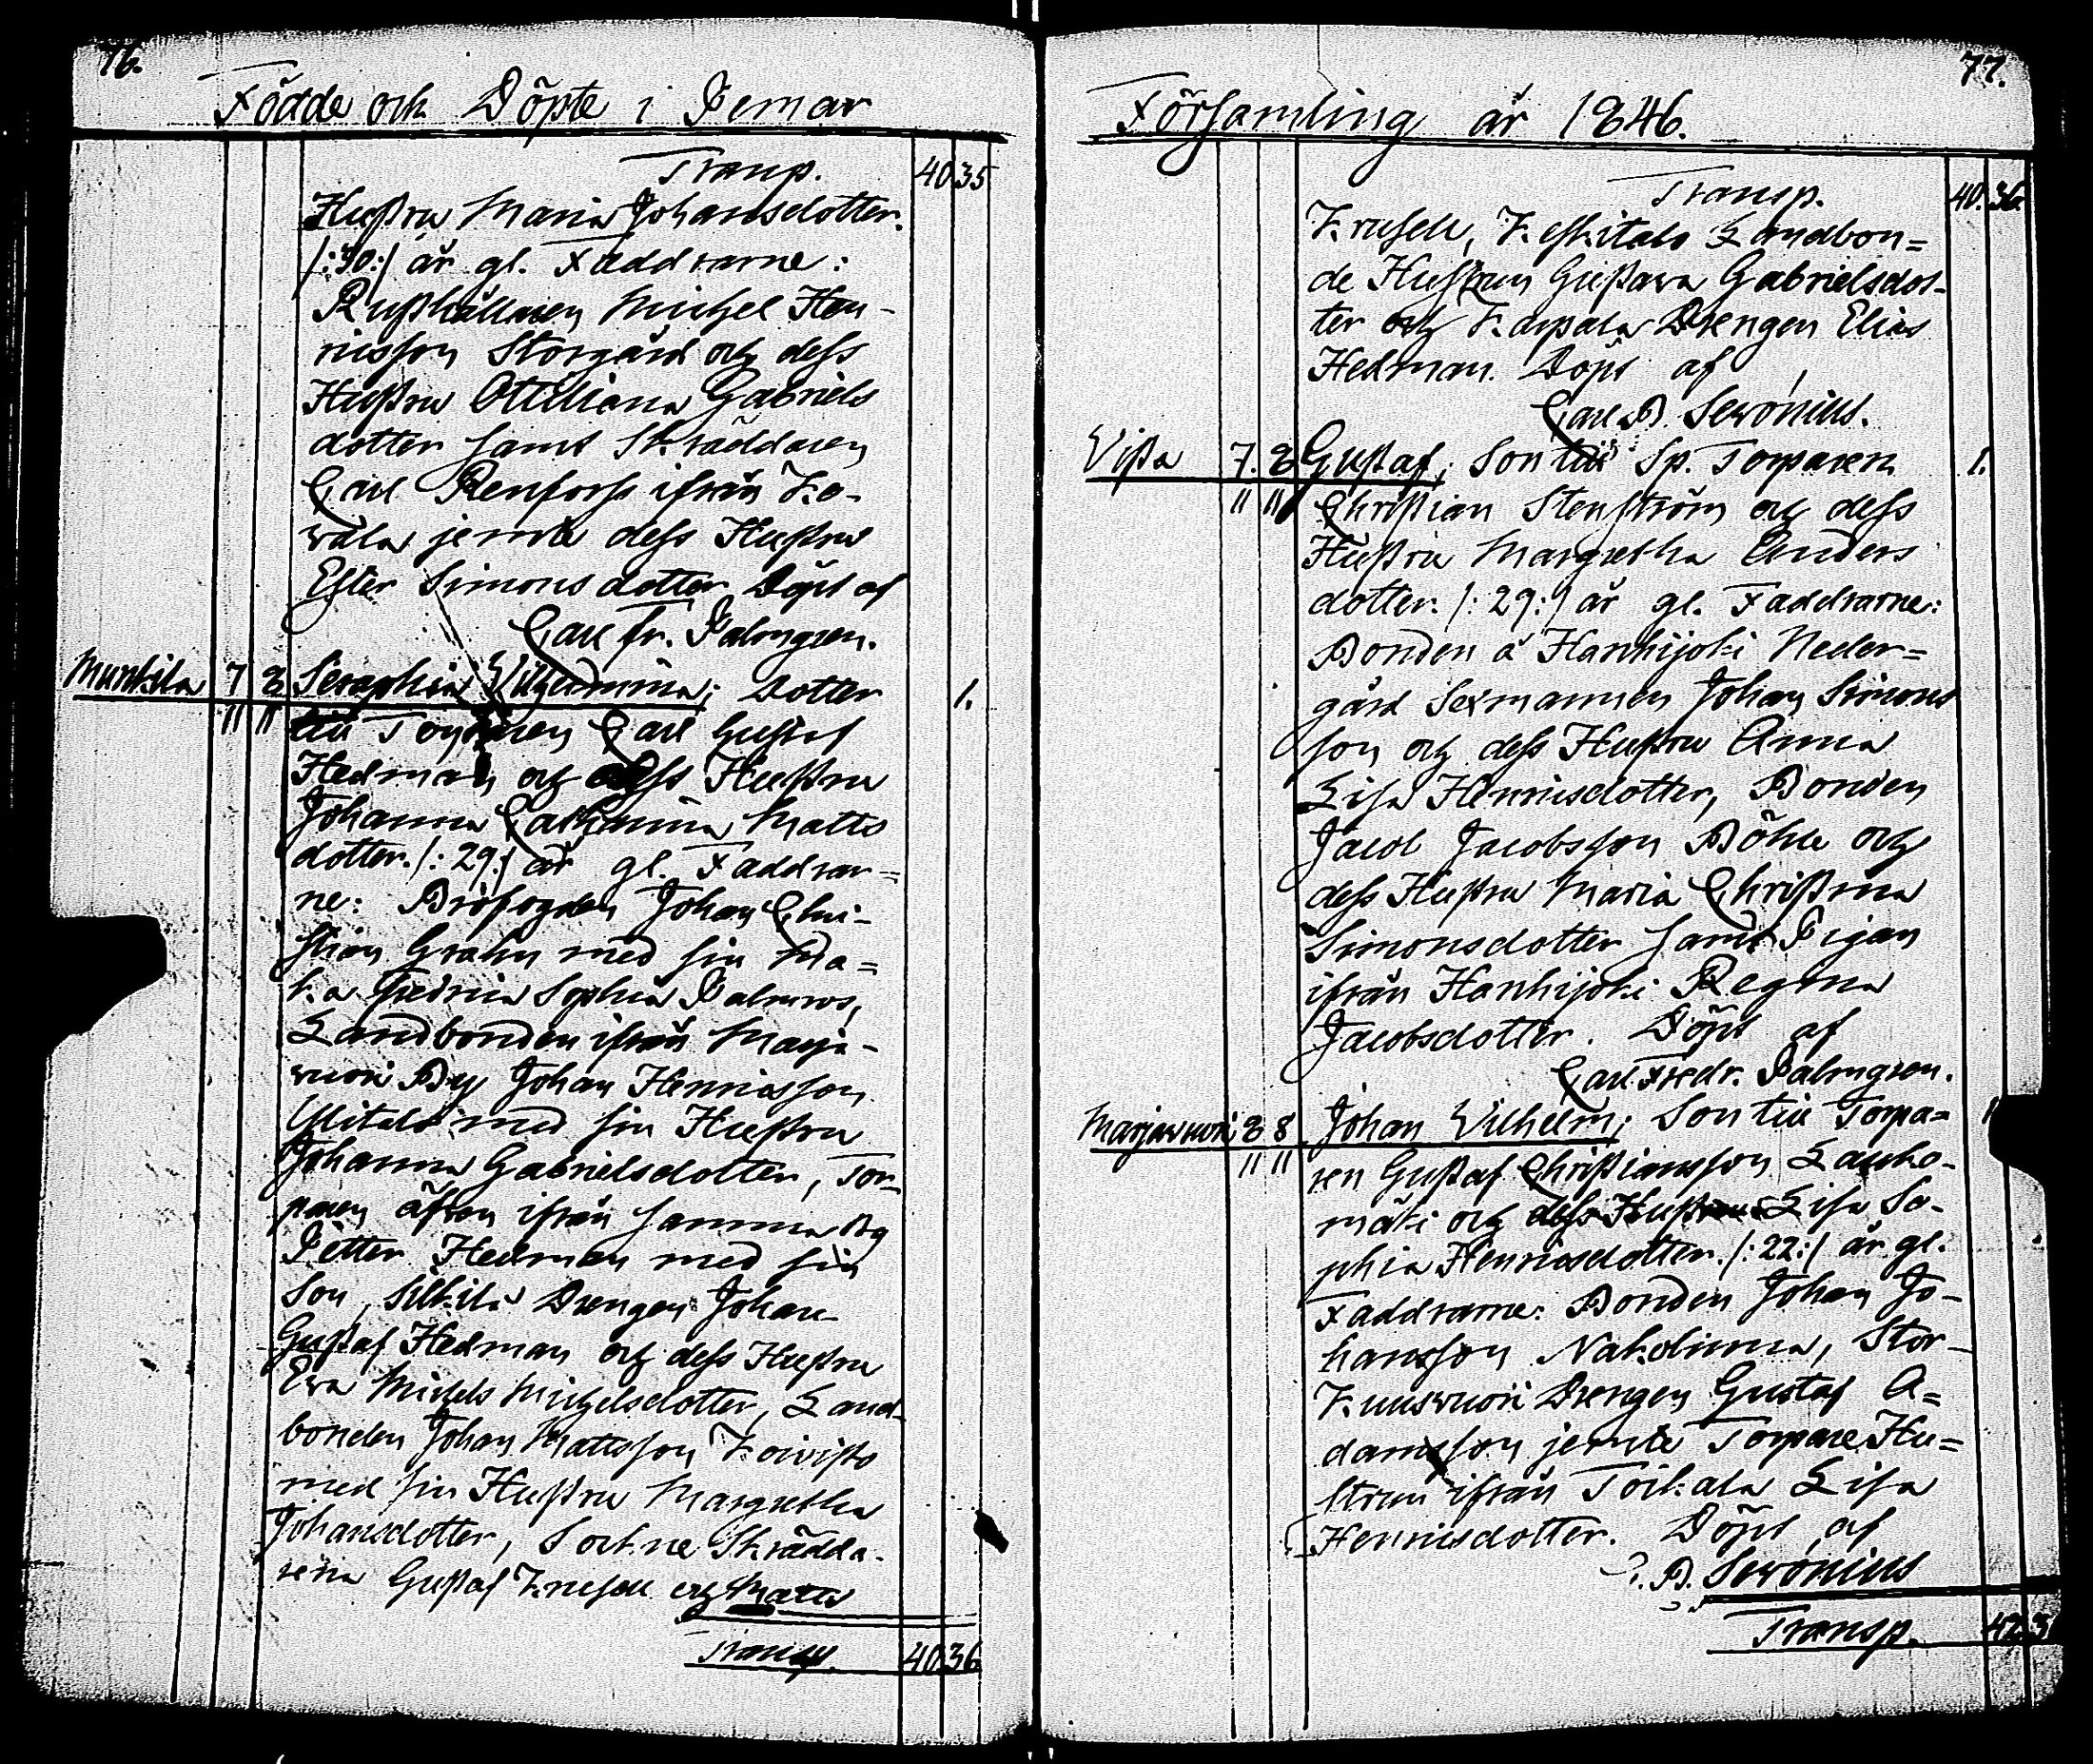 76.
Födde och Döpte i Pemar
Transp. 40 35
Hustru Maria Johansdotter.
/:40:/ år gl. Faddrarne:
Rusthållaren Michel Hen-
ricsson Storgård och dess
Hustru Ottiliana Gabriels
dotter samt Skräddaren
Carl Renforss ifrån Ko-
vala jemte dess Hustru
Ester Simonsdotter Döpt af
Carl Fr. Palmgren.
Munkila 7 8 Seraphia Vilhelmina; Dotter 1.
" " till Torparen Carl Gustaf
Hedman och dess Hustru
Johanna Catharina Matts
dotter. /: 29:/ år gl. Faddrar=
ne: Brofogden Johan Chri-
stian Grahn med sin Ma=
ka Fredrica Sophia Palmros,
Landbonden ifrån Marja-
vuori By Johan Henricsson
Ylitalo med sin Hustru
Johanna Gabrielsdotter, Tor-
paren äfven ifrån samma By
Petter Hedman med sin
Son, Drengen Johan
Gustaf Hedman och dess Hustru
Eva Michels Michelsdotter, Land-
bonden Johan Mattsson Koivisto
med sin Hustru Margretha
Johansdotter, Sockne Skrädda-
rena Gustaf Krusell och Matts
Transp. 40 36
77.
Församling år 1846.
Transp. 40. 36.
Krusell, Keskitalo Landbon=
de Hustrun Gustava Gabrielsdot-
ter och Karpala Drengen Elias
Hedman. Döpt af
Carl B. Serönius.
Vista 7. 8 Gustaf; Son till Sp. Torparen 1.
" " Christian Stenström och dess
Hustru Margretha Anders
dotter. /: 29:/ år gl. Faddrarne:
Bonden å Hanhijoki Neder=
gård Sexmannen Johan Simons
son och dess Hustru Anna
Lisa Henricsdotter, Bonden
Jacob Jacobsson Böhle och
dess Hustru Maria Christina
Simonsdotter samt Pigan
ifrån Hanhijoki Regina
Jacobsdotter. Döpt af
Carl Fredr. Palmgren.
Marjavuori 8 8 Johan Vilhelm; Son till Torpa= 1
" " ren Gustaf Christiansson Lauko-
mäki och dess Hustru Lisa So-
phia Henricsdotter. /: 22:/ år gl.
Faddrarne: Bonden Johan Jo-
hansson Nakolinna, Stor-
Kuusvuori Drengen Gustaf A=
damsson jemte Torpare Hu=
strun ifrån Toikala Lisa
Henricsdotter. Döpt af
C. B. Serönius
Transp. 42 3